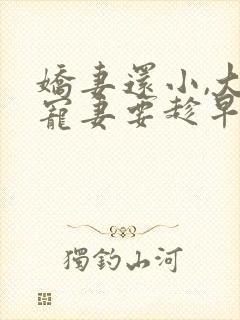 嬌妻還小,大
寵妻要趁早
獨釣山河